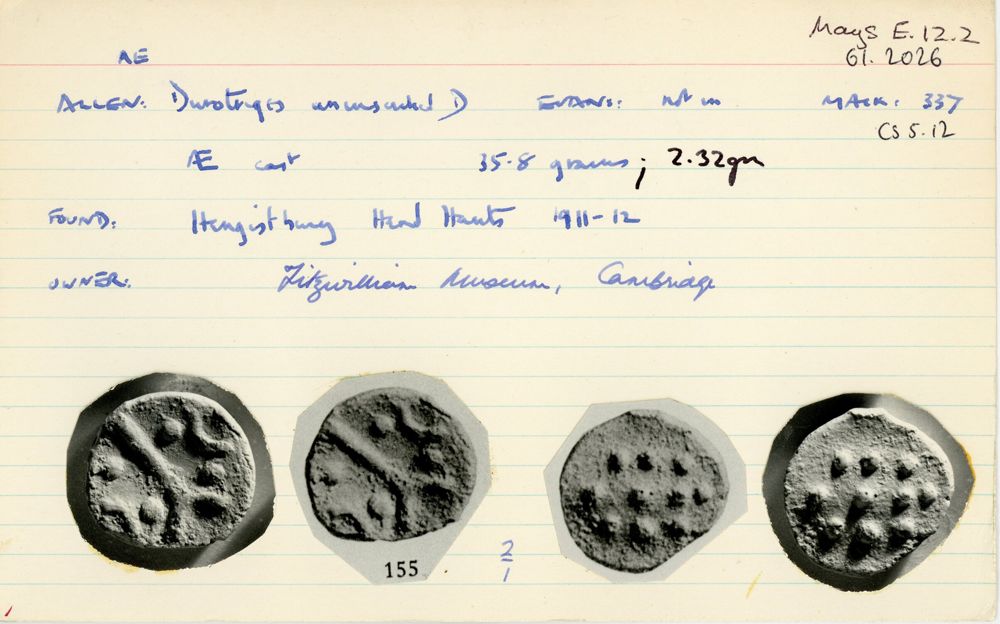 Mays E.12.2
61.2026
AE
ALLEN: Durotriges uninscribed D EVANS: not in MACK: 337
CS 5.12
Æ cast 35.8 grains; 2.32gm
FOUND: Hengistbury Head Hants 1911-12
OWNER: Fitzwilliam Museum, Cambridge
155
2/1